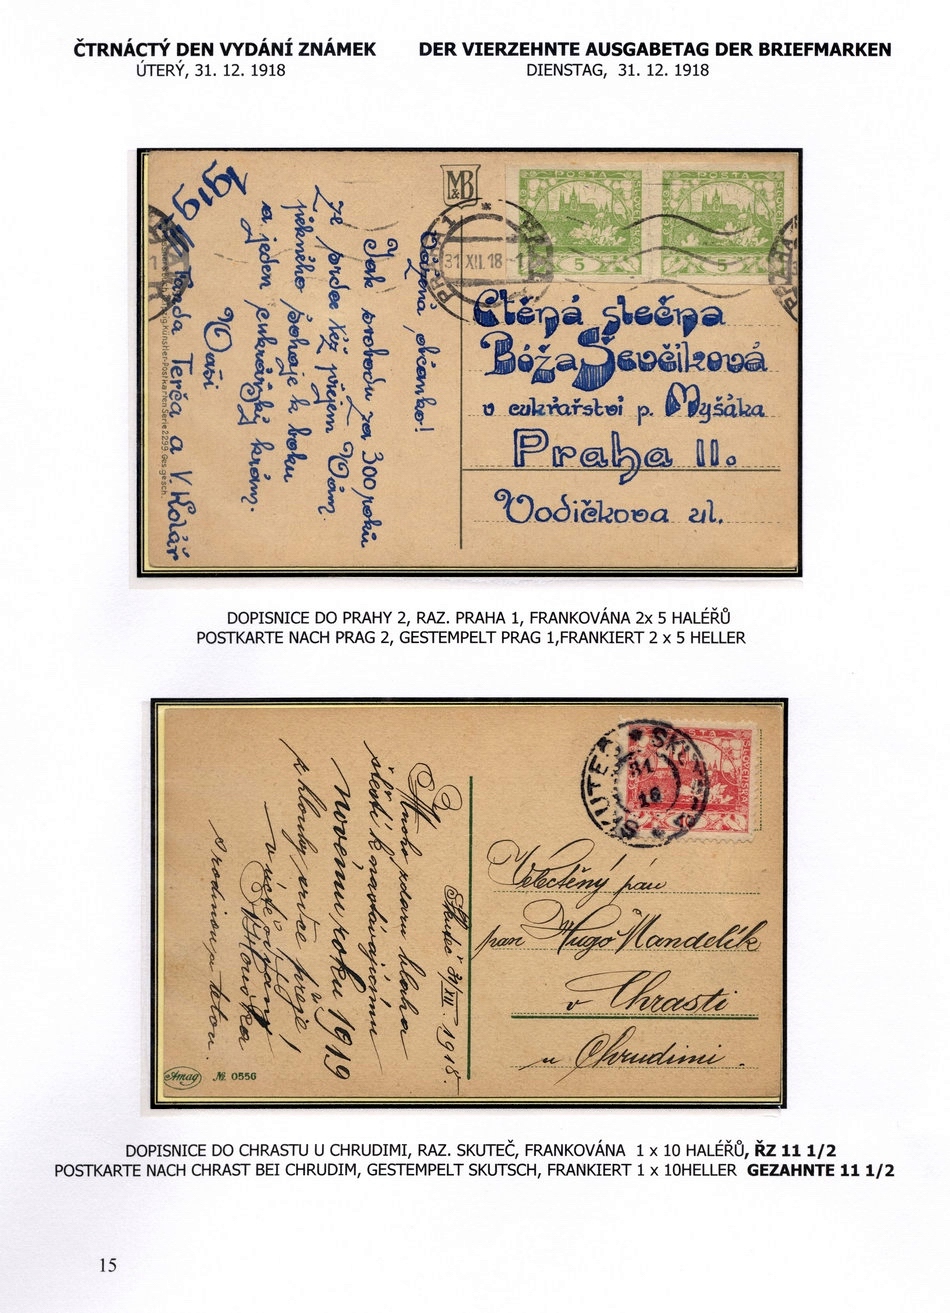 ČTRNÁCTÝ DEN VYDÁNÍ ZNÁMEK
ÚTERÝ, 31. 12. 1918
DER VIERZEHNTE AUSGABETAG DER BRIEFMARKEN
DIENSTAG, 31. 12. 1918
1919
Vážená slečnko!
Tak svobodu za 300 roků
že prdea Kéž přejem Vám
pěkného pohoje k boku
a jeden cukrářský krám.
Vaši
Fanda Terča a V. Kolář
Künstler-Postkarten Serie 2299. Ges. gesch.
M&B
PRAHA 1
31 XII. 18 - 1
PRAHA
POSTA
5
POSTA
5
Ctěná slečna
Bóža Ševčiková
v cukrářství p. Myšáka
Praha II.
Vodičkova ul.
DOPISNICE DO PRAHY 2, RAZ. PRAHA 1, FRANKOVÁNA 2x 5 HALÉŘŮ
POSTKARTE NACH PRAG 2, GESTEMPELT PRAG 1,FRANKIERT 2 x 5 HELLER
Skuteč 31/XII. 1918.
Mnoho zdaru blaha
štěstí k nastávajícímu
novému roku 1919
z hloubi srdce přeje!
v úctě oddaný
s rodinou a tetou.
Amag
№ 0556
SKUTEČ * SKUTEČ *
31
18
POSTA
Velectěný pán
pan Hugo Mandelík
v Chrasti
u Chrudimi.
DOPISNICE DO CHRASTU U CHRUDIMI, RAZ. SKUTEČ, FRANKOVÁNA 1 x 10 HALÉŘŮ, ŘZ 11 1/2
POSTKARTE NACH CHRAST BEI CHRUDIM, GESTEMPELT SKUTSCH, FRANKIERT 1 x 10HELLER GEZAHNTE 11 1/2
15